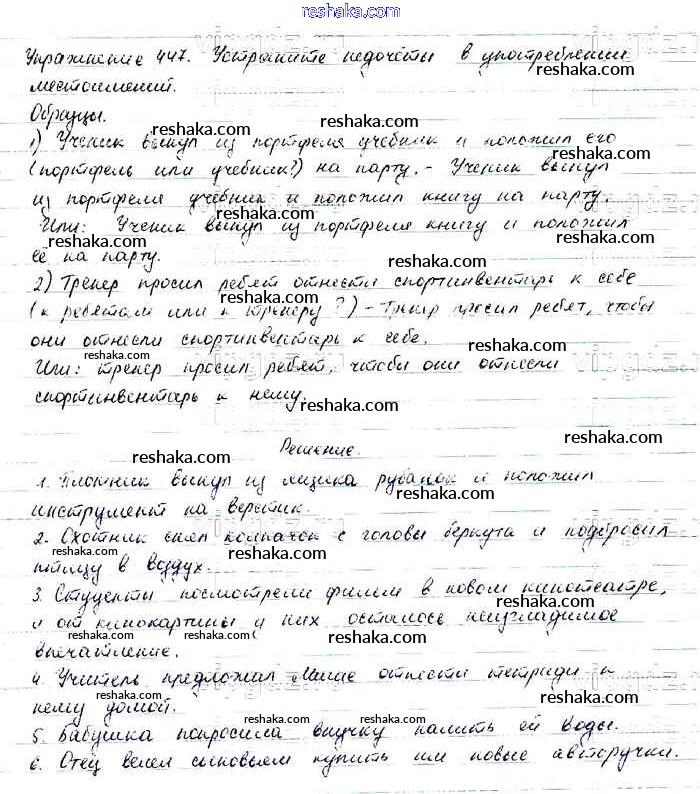 reshaka.com
Упражнение 447. Устраните недочёты в употреблении
reshaka.com
местоимений.
Образцы.
reshaka.com
1) Ученик вынул из портфеля учебник и положил его
reshaka.com
(портфель или учебник?) на парту. - Ученик вынул
из портфеля учебник и положил книгу на парту.
reshaka.com
Или: Ученик вынул из портфеля книгу и положил
её на парту.
reshaka.com
2) Тренер просил ребят отнести спортинвентарь к себе
reshaka.com
(к ребятам или к тренеру?) - Тренер просил ребят, чтобы
они отнесли спортинвентарь к себе.
reshaka.com
Или: тренер просил ребят, чтобы они отнесли
спортинвентарь к нему.
reshaka.com
Решение.
reshaka.com
1. Плотник вынул из ящика рубанок и положил
reshaka.com
инструмент на верстак.
reshaka.com
2. Охотник снял колпачок с головы беркута и подбросил
reshaka.com
птицу в воздух.
reshaka.com
3. Студенты посмотрели фильм в новом кинотеатре,
reshaka.com
и от кинокартины у них осталось неизгладимое
reshaka.com
впечатление.
4. Учитель предложил Мише отнести тетради к
reshaka.com
нему домой.
reshaka.com
5. Бабушка попросила внучку налить ей воды.
reshaka.com
6. Отец велел сыновьям купить им новые авторучки.
reshaka.com